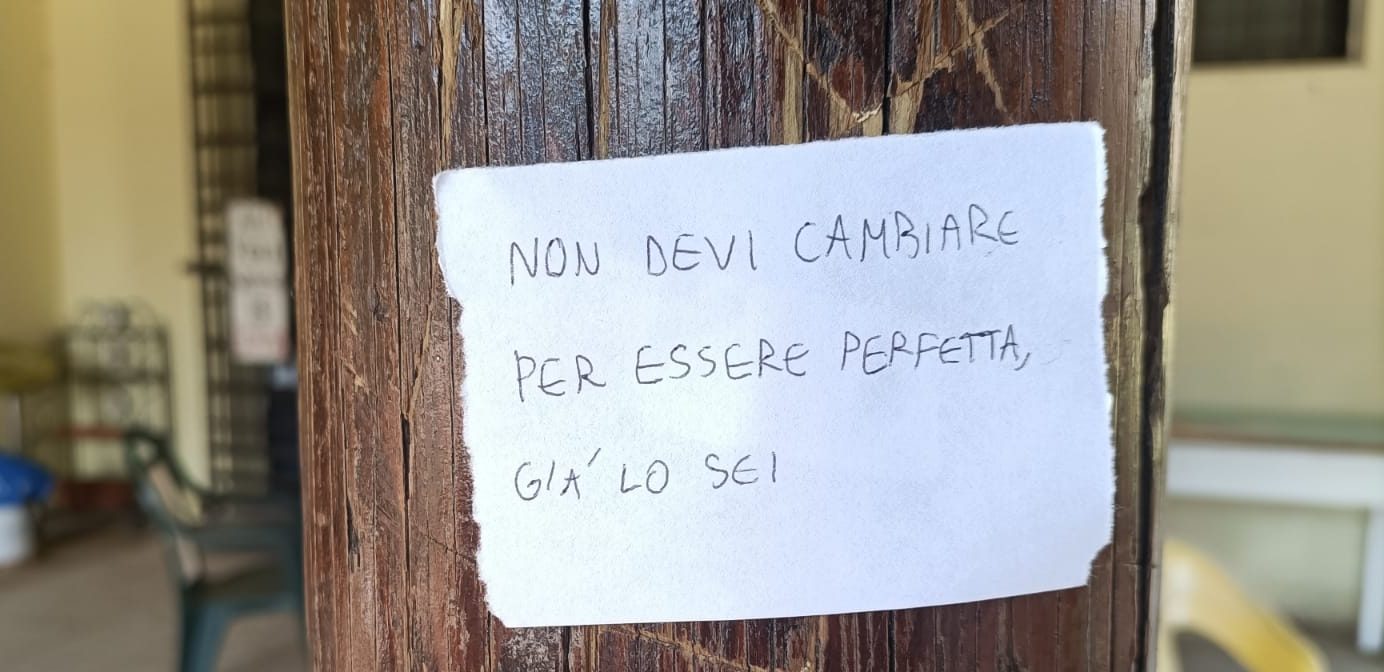 NON DEVI CAMBIARE
PER ESSERE PERFETTA,
GIA' LO SEI